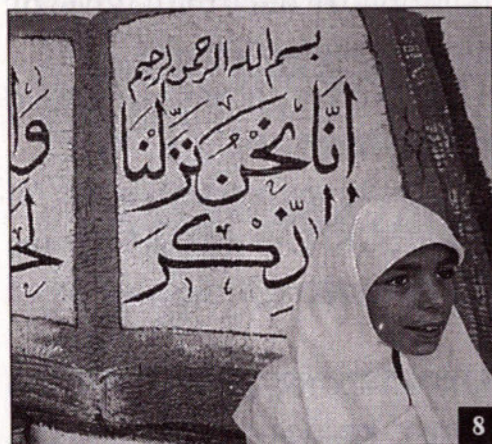 بسم الله الرحمن الرحيم
انّا نَحْنُ نَزَّلْنَا
الذِّكْرَ
وا
لحا
8